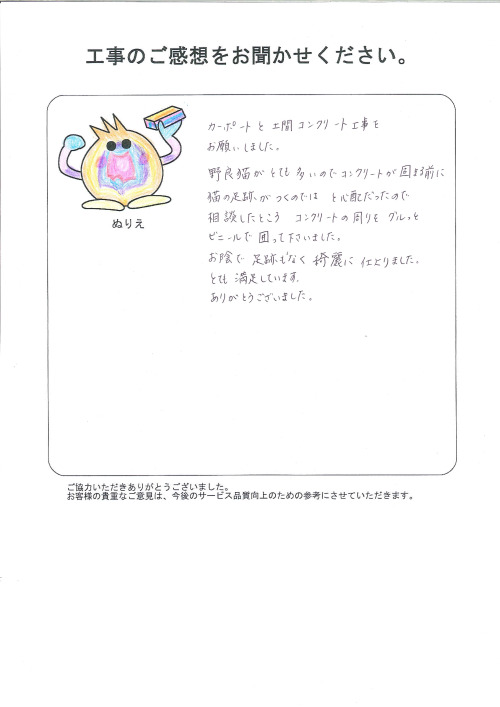 工事のご感想をお聞かせください。
ぬりえ
カーポートと土間コンクリート工事を
お願いしました。
野良猫がとても多いのでコンクリートが固まる前に
猫の足跡がつくのではと心配だったので
相談したところ コンクリートの周りをグルっと
ビニールで囲って下さいました。
お陰で足跡もなく綺麗に仕上りました。
とても満足しています。
ありがとうございました。
ご協力いただきありがとうございました。
お客様の貴重なご意見は、今後のサービス品質向上のための参考にさせていただきます。